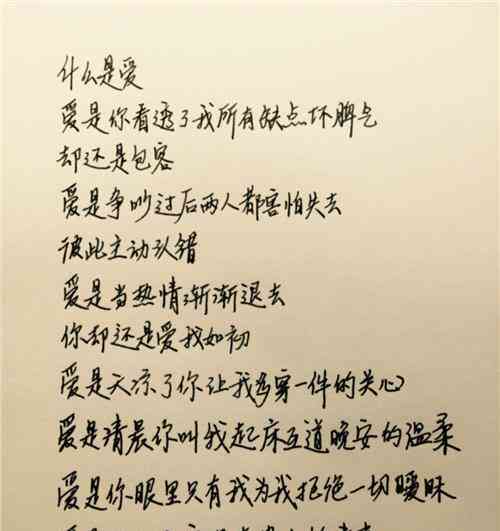 什么是爱
爱是你看透了我所有缺点坏脾气
却还是包容
爱是争吵过后两人都害怕失去
彼此主动认错
爱是当热情渐渐退去
你却还是爱我如初
爱是天凉了你让我多穿一件的关心
爱是清晨你叫我起床互道晚安的温柔
爱是你眼里只有我为我拒绝一切暧昧
爱是